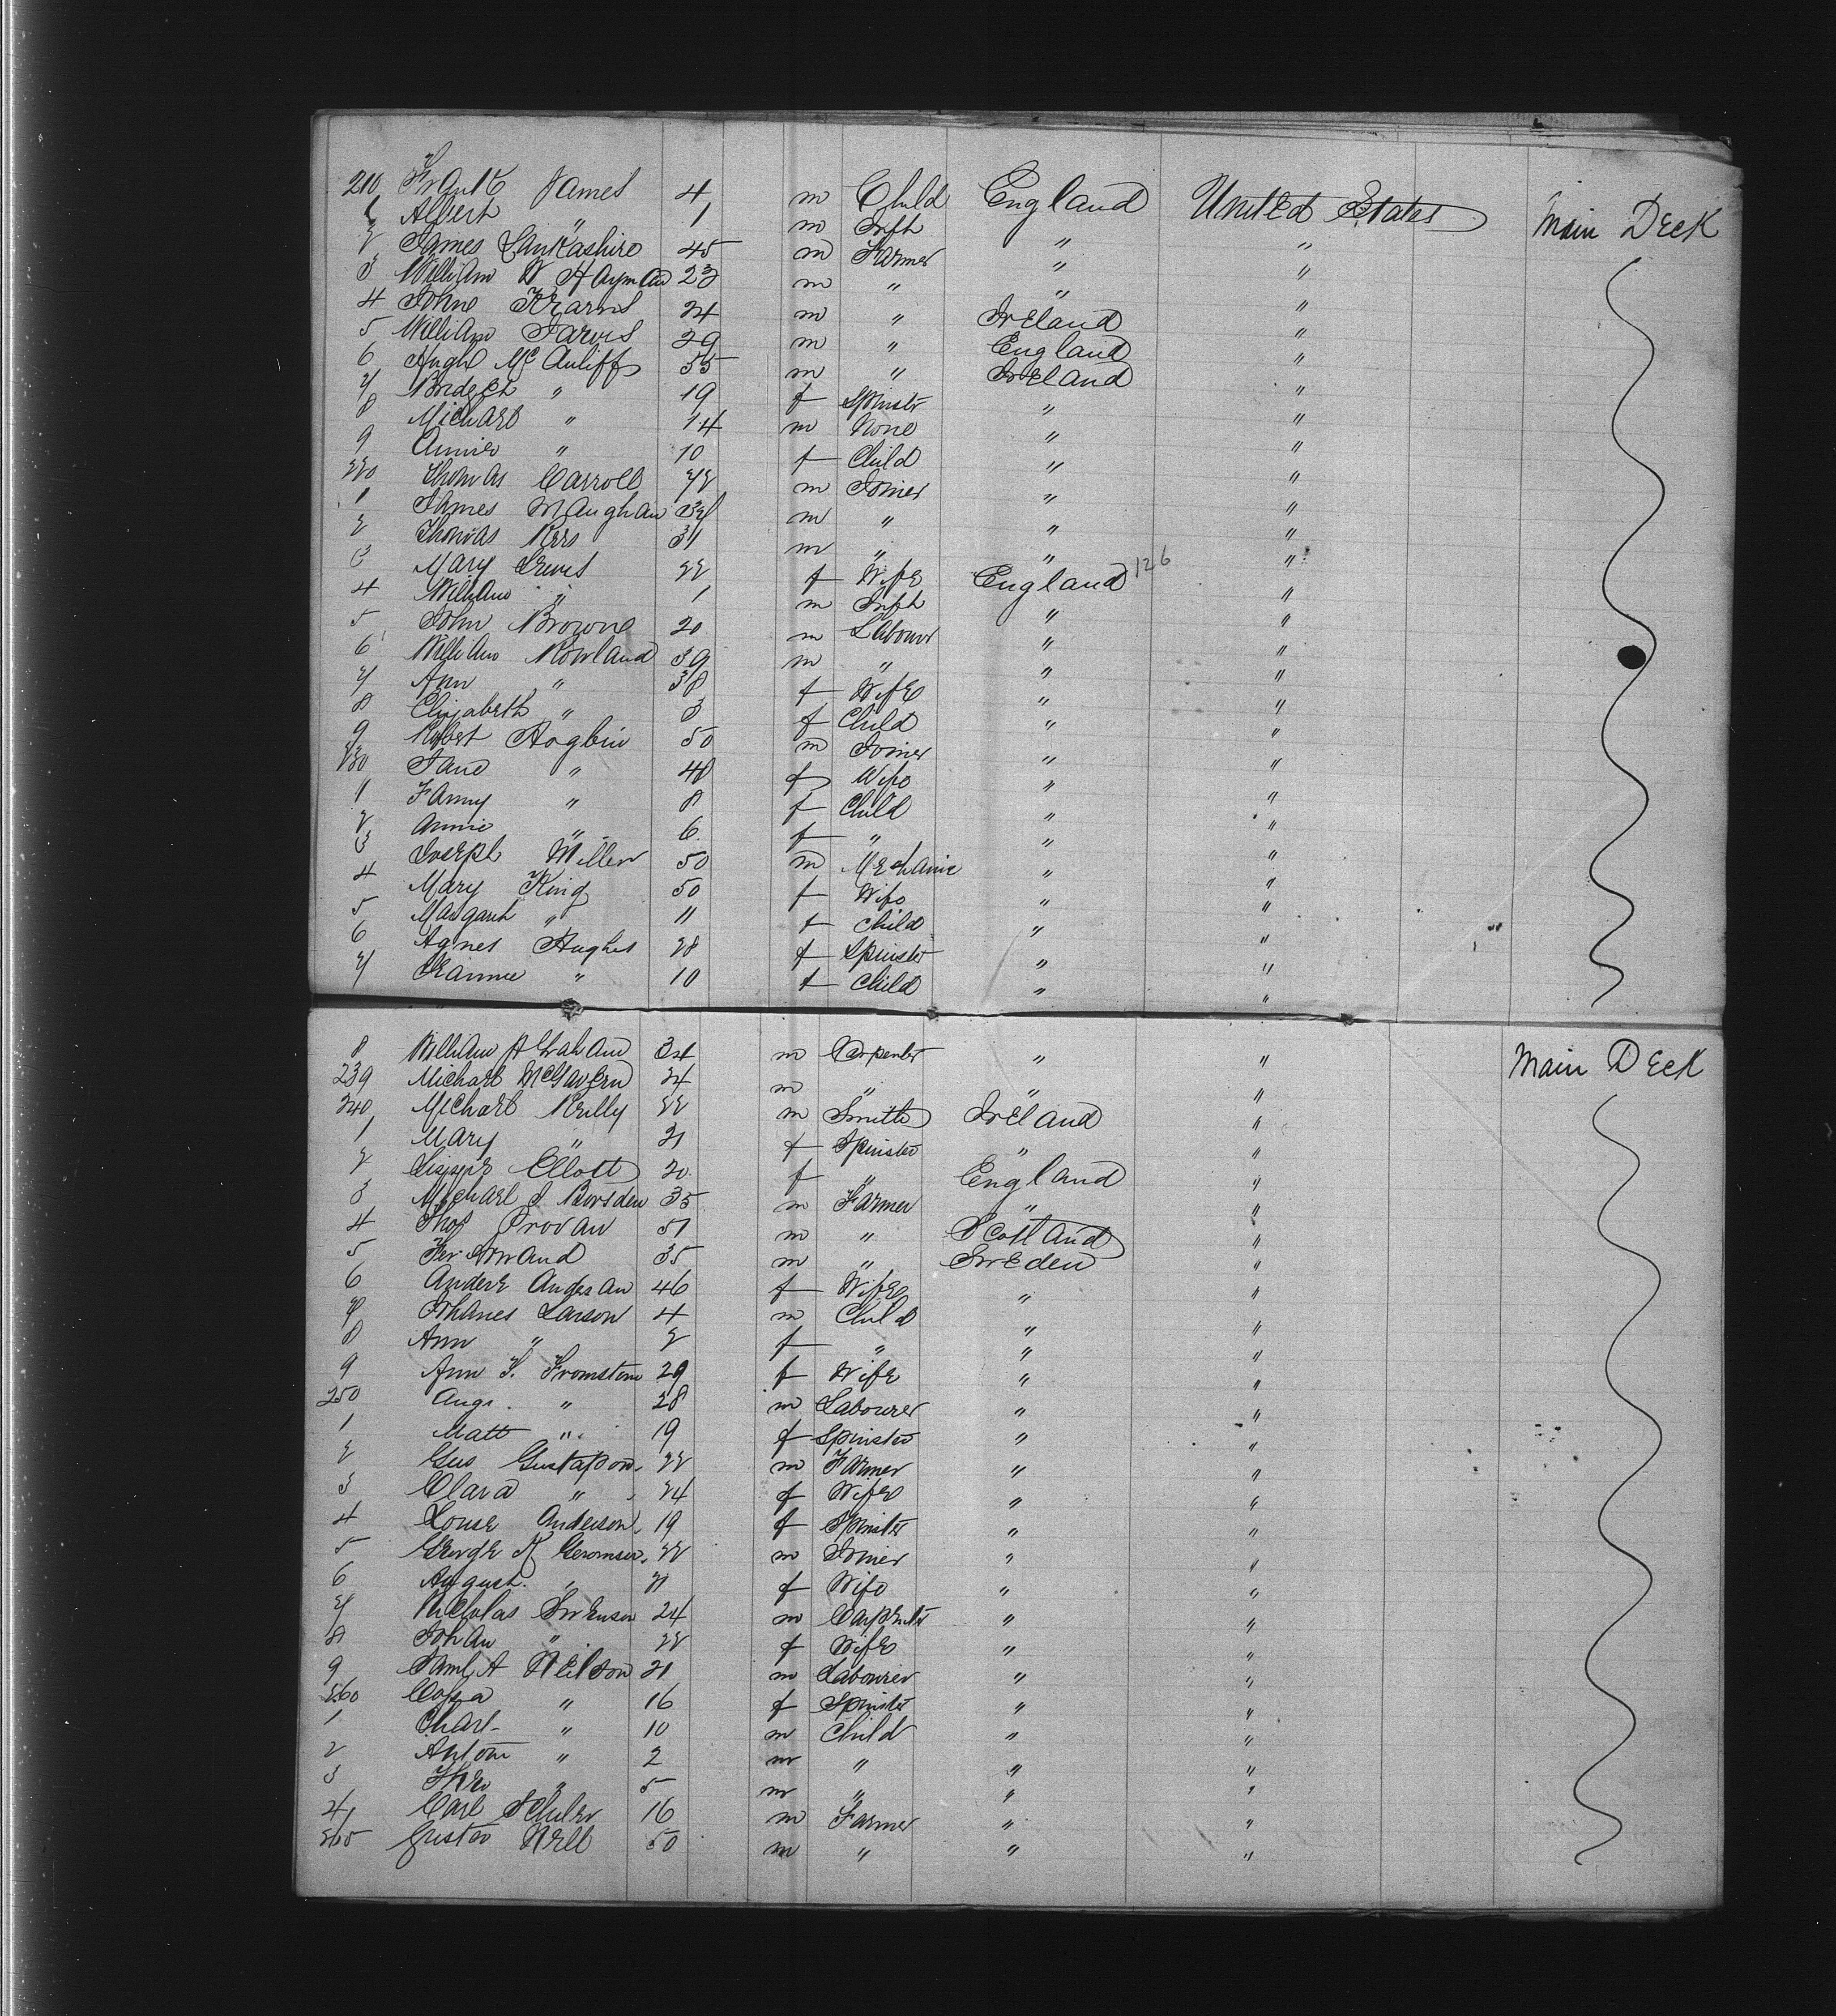 210 Frank James 4 m Child England United States Main Deck
1 Albert " 1 m Infth " "
2 James Lankashire 45 m Farmer " "
3 William W Hayman 23 m " " "
4 Johne Kearns 24 m " Ireland "
5 William Jarvis 29 m " England "
6 Hugh McAuliff 55 m " Ireland "
7 Bridget " 19 f Spinstr " "
8 Michael " 14 m None " "
9 Annie " 10 f Child " "
220 Thomas Carroll 42 m Joiner " "
1 James Maughan m " " "
2 Thomas 31 m " " "
3 Mary Lewis 22 f Wife England 126 "
4 William " 1 m Infth " "
5 John Browne 20 m Labour " "
6 William Rowland 39 m " " "
7 Ann " 38 f Wife " "
8 Elizabeth " 3 f Child " "
9 Robert Hogbin 50 m Joiner " "
230 Jane " 48 f Wife " "
1 Fanny " 8 f Child " "
2 Annie " 6 f " " "
3 Joseph Miller 50 m Mechanic " "
4 Mary King 50 f Wife " "
5 Margaret " 11 f Child " "
6 Agnes Hughes 28 f Spinster " "
7 " 10 f Child " "
8 William A Graham 34 m Carpenter " " Main Deck
239 Michael McGavern 24 m " " "
240 Michael Reilly 22 m Smith Ireland "
1 Mary " 21 f Spinster " "
2 Lizzie Ellott 20 f " England "
3 Michael J. Borsden 35 m Farmer " "
4 Thos Provan 51 m " Scotland "
5 35 m " Sweden "
6 Andere Andersan 46 f Wife " "
7 Johanes Larson 4 m Child " "
8 Ann " 2 f " " "
9 Ann S. Fromstom 29 f Wife " "
250 Augs. " 28 m Labourer " "
1 Matt " 19 f Spinster " "
2 Gus Gustafson 22 m Farmer " "
3 Clara " 24 f Wife " "
4 Louse Anderson 19 f Spinster " "
5 George K 22 m Joiner " "
6 August. " 21 f Wife " "
7 Nicholas Swenson 24 m Carpenter " "
8 Johan " 22 f Wife " "
9 Saml A Neilson 21 m Labourer " "
260 " 16 f Spinster " "
1 Charl- " 10 m Child " "
2 Anton " 2 m " " "
3 Theo " 5 m " " "
4 Carl Schuler 16 m Farmer " "
265 Gustav Nell 50 m " " "